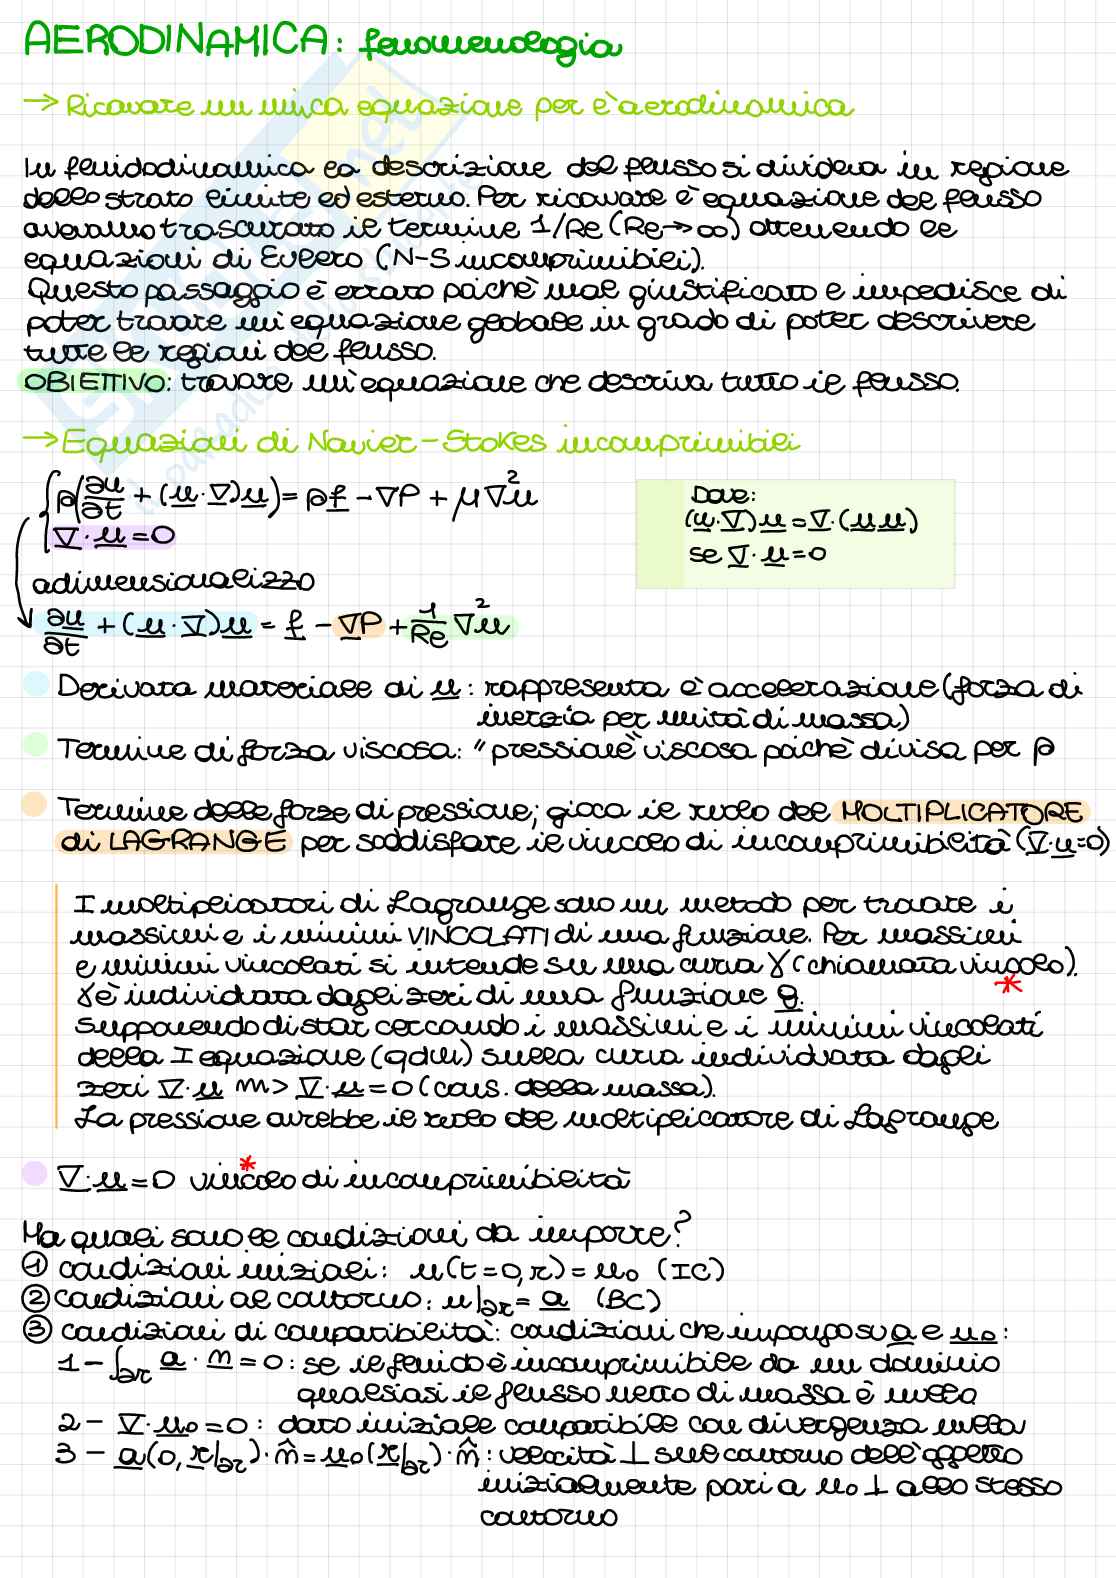 AERODINAMICA: fenomenologia
→ Ricavare un'unica equazione per l'aerodinamica
In fluidodinamica la descrizione del flusso si divideva in regione
dello strato limite ed esterno. Per ricavare l'equazione del flusso
avevamo trascurato il termine 1/Re (Re→∞) ottenendo le
equazioni di Eulero (N-S incomprimibili).
Questo passaggio è errato poichè mal giustificato e impedisce di
poter trovare un'equazione globale in grado di poter descrivere
tutte le regioni del flusso.
OBIETTIVO: trovare un'equazione che descriva tutto il flusso.
→ Equazioni di Navier-Stokes incomprimibili
{ρ(∂u/∂t + (u·∇)u) = ρf - ∇P + μ∇²u
∇·u = 0
Dove:
(u·∇)u = ∇·(uu)
se ∇·u = 0
adimensionalizzo
∂u/∂t + (u·∇)u = f - ∇P + 1/Re ∇²u
Derivata materiale di u: rappresenta l'accelerazione (forza di
inerzia per unità di massa)
Termine di forza viscosa: "pressione" viscosa poichè divisa per ρ
Termine delle forze di pressione; gioca il ruolo del MOLTIPLICATORE
di LAGRANGE per soddisfare il vincolo di incomprimibilità (∇·u=0)
I moltiplicatori di Lagrange sono un metodo per trovare i
massimi e i minimi VINCOLATI di una funzione. Per massimi
e minimi vincolati si intende su una curva γ (chiamata vincolo).
*
γ è individuata dagli zeri di una funzione g.
Supponendo di star cercando i massimi e i minimi vincolati
della I equazione (qdm) sulla curva individuata dagli
zeri ∇·u ⟿ ∇·u = 0 (cons. della massa).
La pressione avrebbe il ruolo del moltiplicatore di Lagrange
∇·u = 0 vincolo* di incomprimibilità
Ma quali sono le condizioni da imporre?
① condizioni iniziali: u(t=0,r) = u₀ (IC)
② condizioni al contorno: u|∂r = a (BC)
③ condizioni di compatibilità: condizioni che impongo su a e u₀:
1 - ∫∂r a · n = 0: se il fluido è incomprimibile da un dominio
qualsiasi il flusso netto di massa è nullo
2 - ∇·u₀ = 0: dato iniziale compatibile con divergenza nulla
3 - a(0, r|∂r)·n̂ = u₀(r|∂r)·n̂: velocità ⊥ sul contorno dell'oggetto
inizialmente pari a u₀ ⊥ allo stesso
contorno